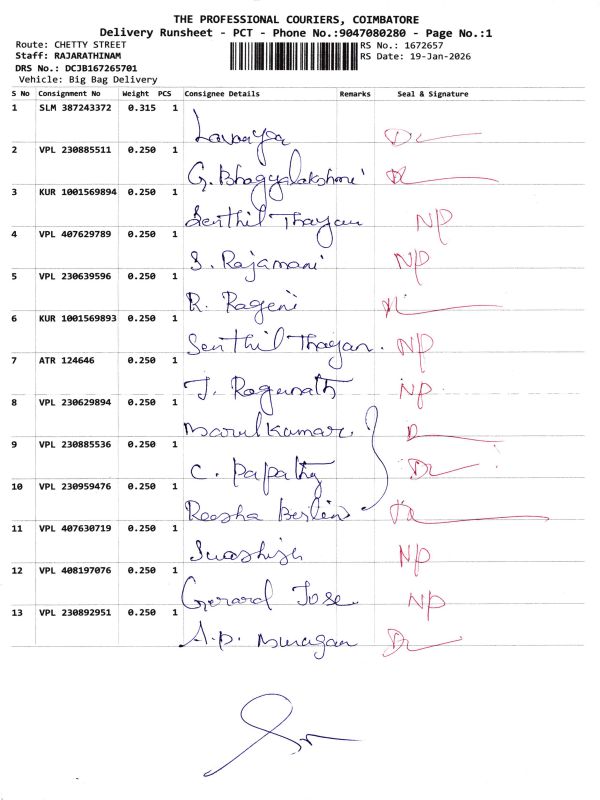 THE PROFESSIONAL COURIERS, COIMBATORE
Delivery Runsheet - PCT - Phone No.:9047080280 - Page No.:1
Route: CHETTY STREET RS No.: 1672657
Staff: RAJARATHINAM RS Date: 19-Jan-2026
DRS No.: DCJB167265701
Vehicle: Big Bag Delivery
S No Consignment No Weight PCS Consignee Details Remarks Seal & Signature
1 SLM 387243372 0.315 1
2 VPL 230885511 0.250 1 G. Bhagyalakshmi
3 KUR 1001569894 0.250 1 Senthil Thayan NP
4 VPL 407629789 0.250 1 S. Rajamani NP
5 VPL 230639596 0.250 1 R. Rageni
6 KUR 1001569893 0.250 1 Senthil Thayan. NP
7 ATR 124646 0.250 1 J. Ragunath NP
8 VPL 230629894 0.250 1
9 VPL 230885536 0.250 1 C. Papathy
10 VPL 230959476 0.250 1 Reesha Berlin
11 VPL 407630719 0.250 1 NP
12 VPL 408197076 0.250 1 Gerard Jose NP
13 VPL 230892951 0.250 1 A.P. Murugan